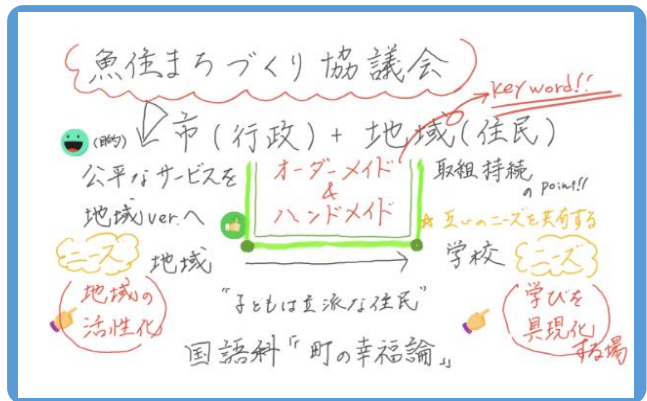 魚住まちづくり協議会
keyword!!
(目的) 市(行政)+地域(住民)
公平なサービスを
地域ver.へ
オーダーメイド
&
ハンドメイド
取組持続
のpoint!!
☆互いのニーズを共有する
ニーズ 地域
学校 ニーズ
地域の
活性化
"子どもは立派な住民"
学びを
具現化
する場
国語科「町の幸福論」